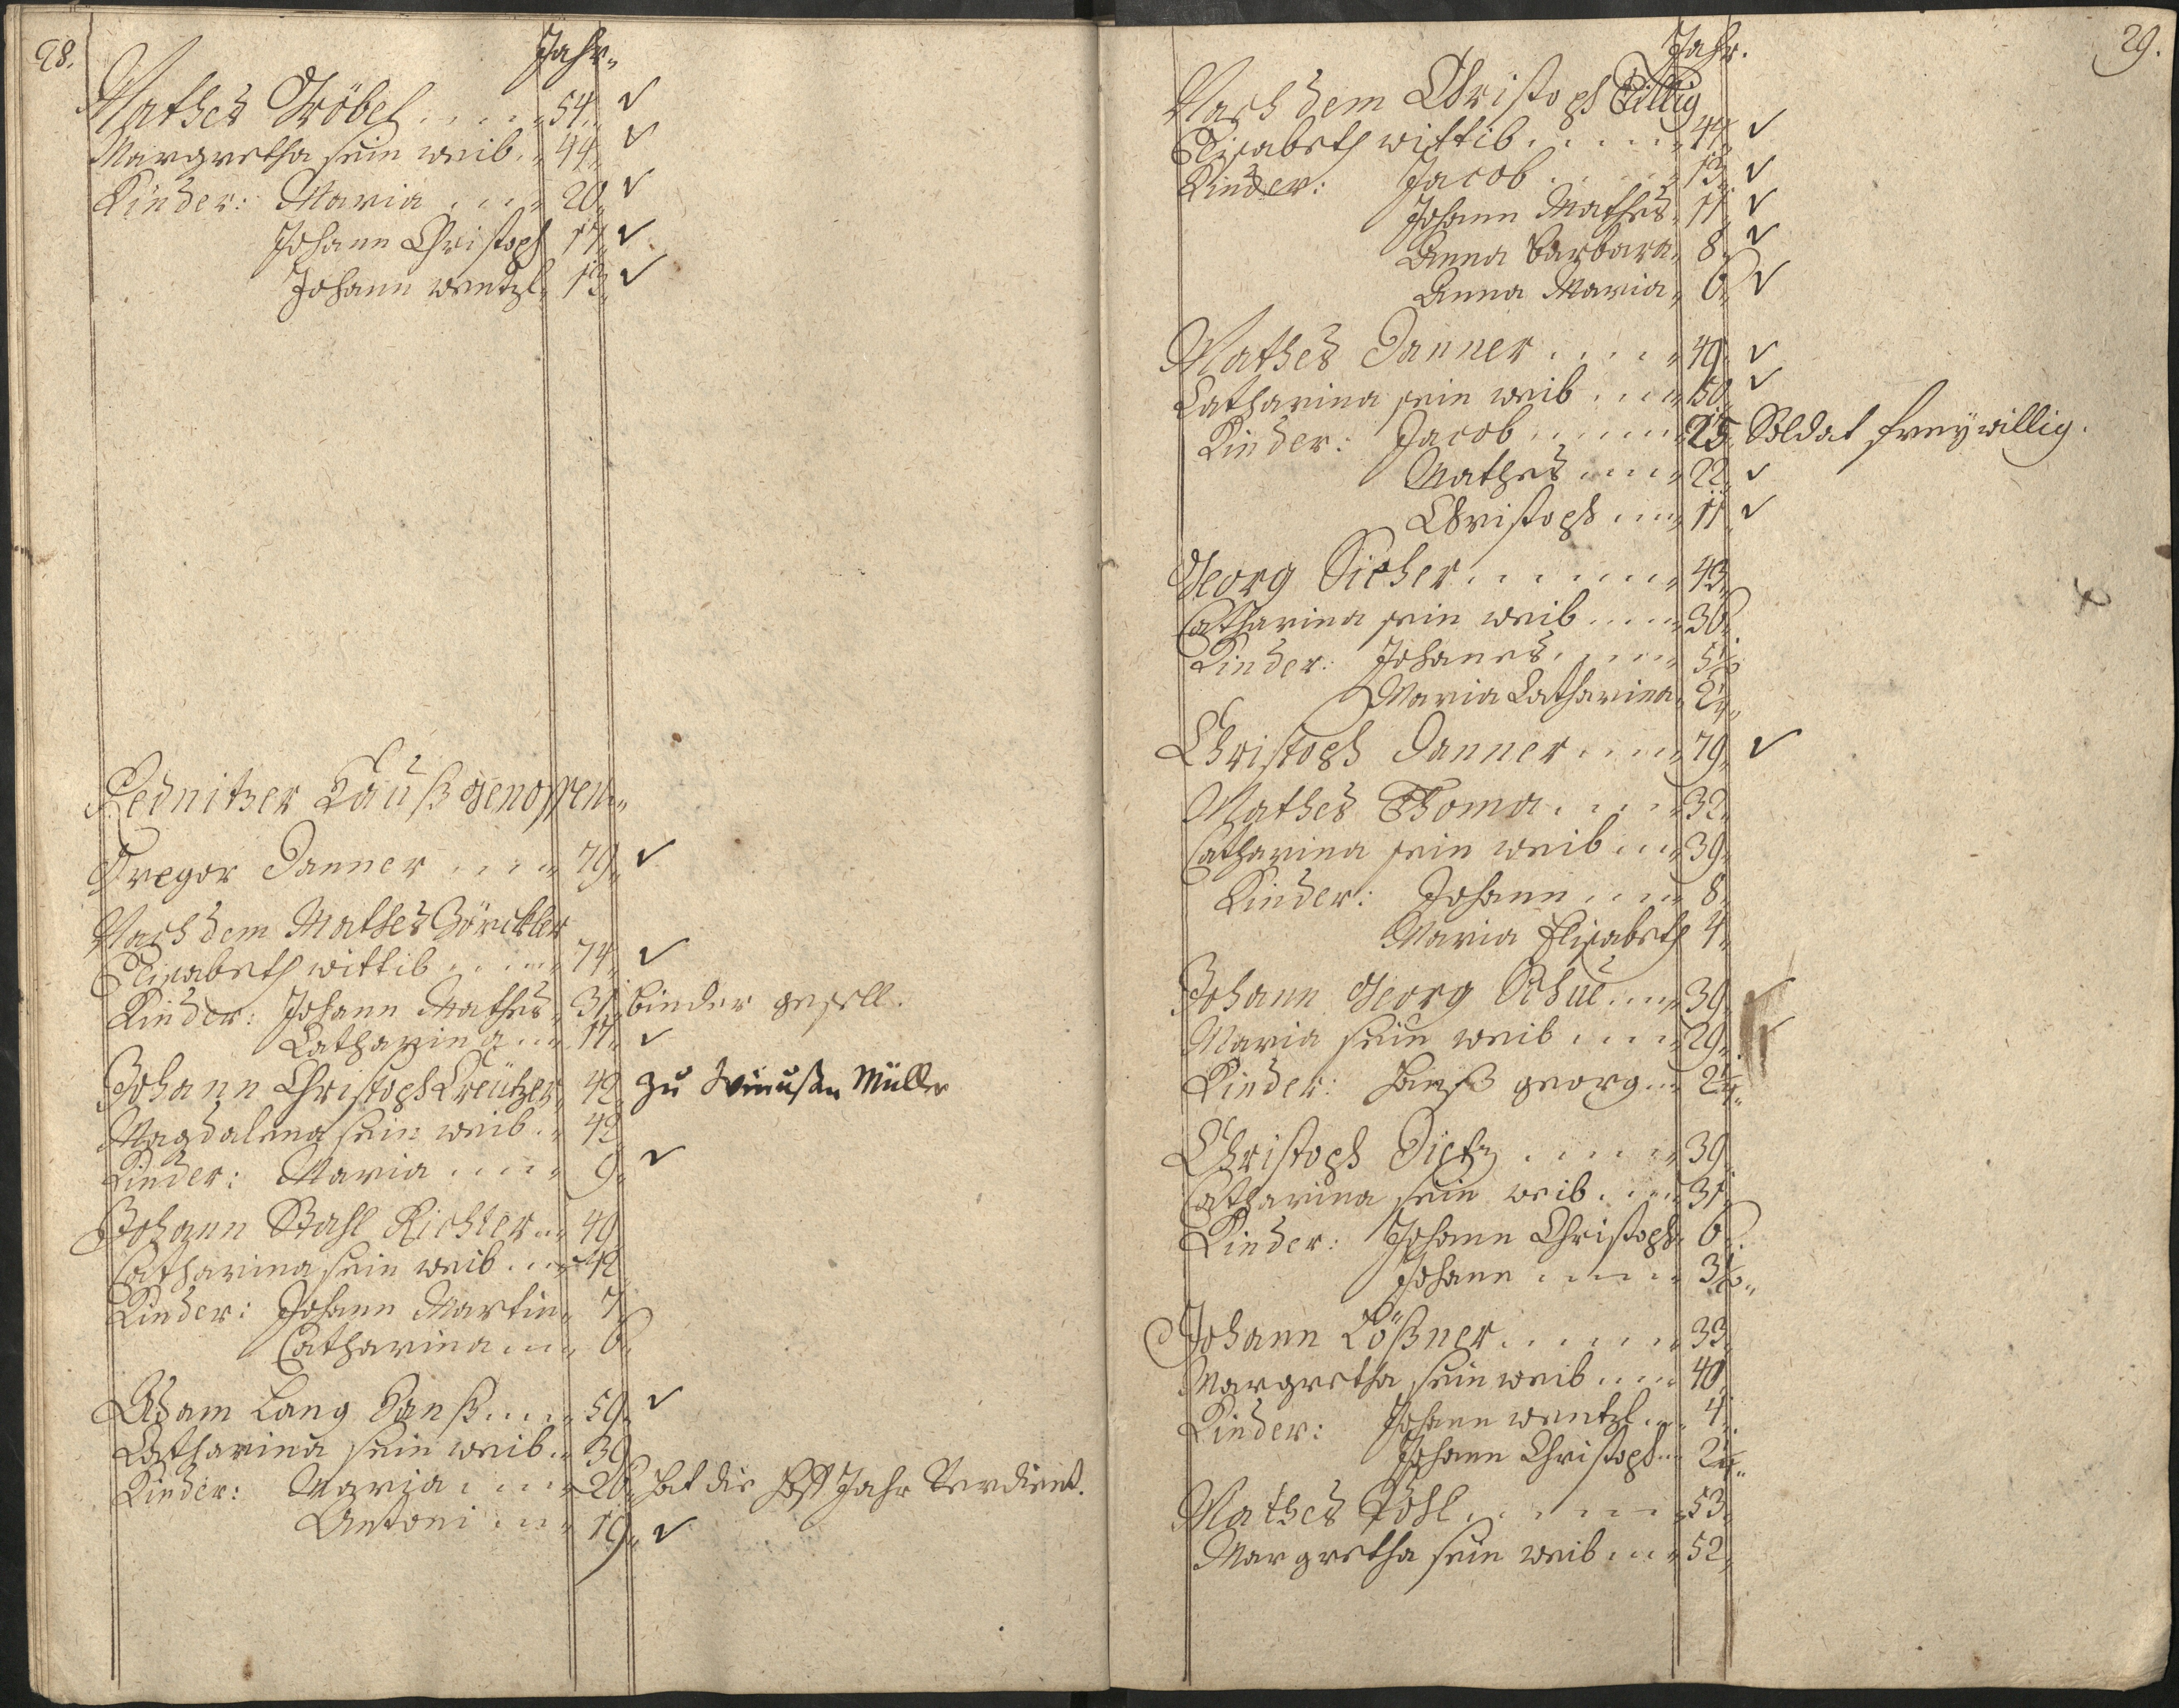 28.
Jahr.
Mathes Gröbel . . . . 54. ✓
Margretha sein weib. 44. ✓
Kinder: Maria . . . . 20. ✓
Johann Christoph 17. ✓
Johann wentzl. 13. ✓
Rednitzer Haußgenossen.
Gregor Danner . . . . 79. ✓
Nach dem Mathes Görckler
Elisabeth wittib . . . . 74. ✓
Kinder: Johann Mathes. 31. binder gesell.
Catharina . . 17. ✓
Johann Christoph Creützer. 42. zu Müller
Magdalena sein weib. 42.
Kinder: Maria . . . . 9. ✓
Johann Stahl Richter . . 49
Catharina sein weib . . . 42
Kinder: Johann Martin. 7.
Catharina . . . 6.
Adam Lang Hanß . . . . 59. ✓
Catharina sein weib . . 39
Kinder: Maria . . . . 20. hat die Hoff Jahr Verdient.
Antoni . . . 19. ✓
29.
Jahr.
Nach dem Christoph Tillig
Elisabeth wittib . . . . . 44. ✓
Kinder: Jacob . . . . 13. ✓
Johann Mathes. 11. ✓
Anna Barbara. 8. ✓
Anna Maria. 6. ✓
Mathes Danner . . . . 49. ✓
Catharina sein weib . . . 50. ✓
Kinder: Jacob . . . . . 25. Soldat freywillig.
Mathes . . . . 22. ✓
Christoph . . . 11. ✓
Georg Sicher . . . . . . 43.
Catharina sein weib . . . . 36.
Kinder: Johanes . . . . . 5½
Maria Catharina. 2¼.
Christoph Danner . . . . 79. ✓
Mathes Thoma . . . . 32.
Catharina sein weib . . . 39.
Kinder: Johann . . . . 8.
Maria Elisabeth 4.
Johann Georg . . . 39. ✓
Maria sein weib . . . . 29. ✓
Kinder: Hanß georg . . 2¼.
Christoph Dietz . . . . . 39.
Catharina sein weib . . . . 31.
Kinder: Johann Christoph. 6.
Johann . . . . . 3½.
Johann Lößner . . . . . . 33.
Margretha sein weib . . . . 40
Kinder: Johann wentzl . . . 4.
Johann Christoph . . 2¼.
Mathes Pohl . . . . . . 53.
Margretha sein weib . . . 52.